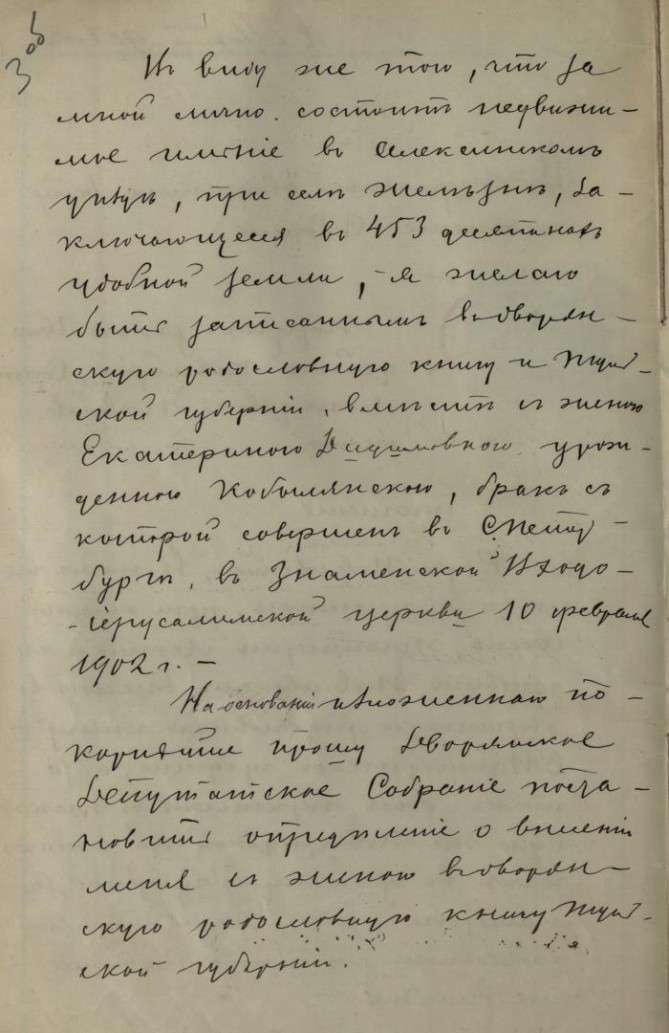 306
Въ виду же того, что за
мной лично состоитъ недвижи-
мое имѣніе въ Алексинскомъ
уѣздѣ, при селѣ Желѣзнѣ, за-
ключающееся въ 453 десятинахъ
удобной земли, - я желаю
быть записаннымъ въ дворян-
скую родословную книгу и Туль-
ской губерніи, вмѣстѣ съ женою
Екатериною урож-
денною Кобылянскою, бракъ съ
которой совершенъ въ СПетер-
бургѣ, въ Знаменской Входо-
-іерусалимской церкви 10 февраля
1902 г. -
На основаніи изложеннаго по-
корнѣйше прошу Дворянское
Депутатское Собраніе поста-
новить опредѣленіе о внесеніи
меня съ женою въ дворян-
скую родословную книгу Туль-
ской губерніи.